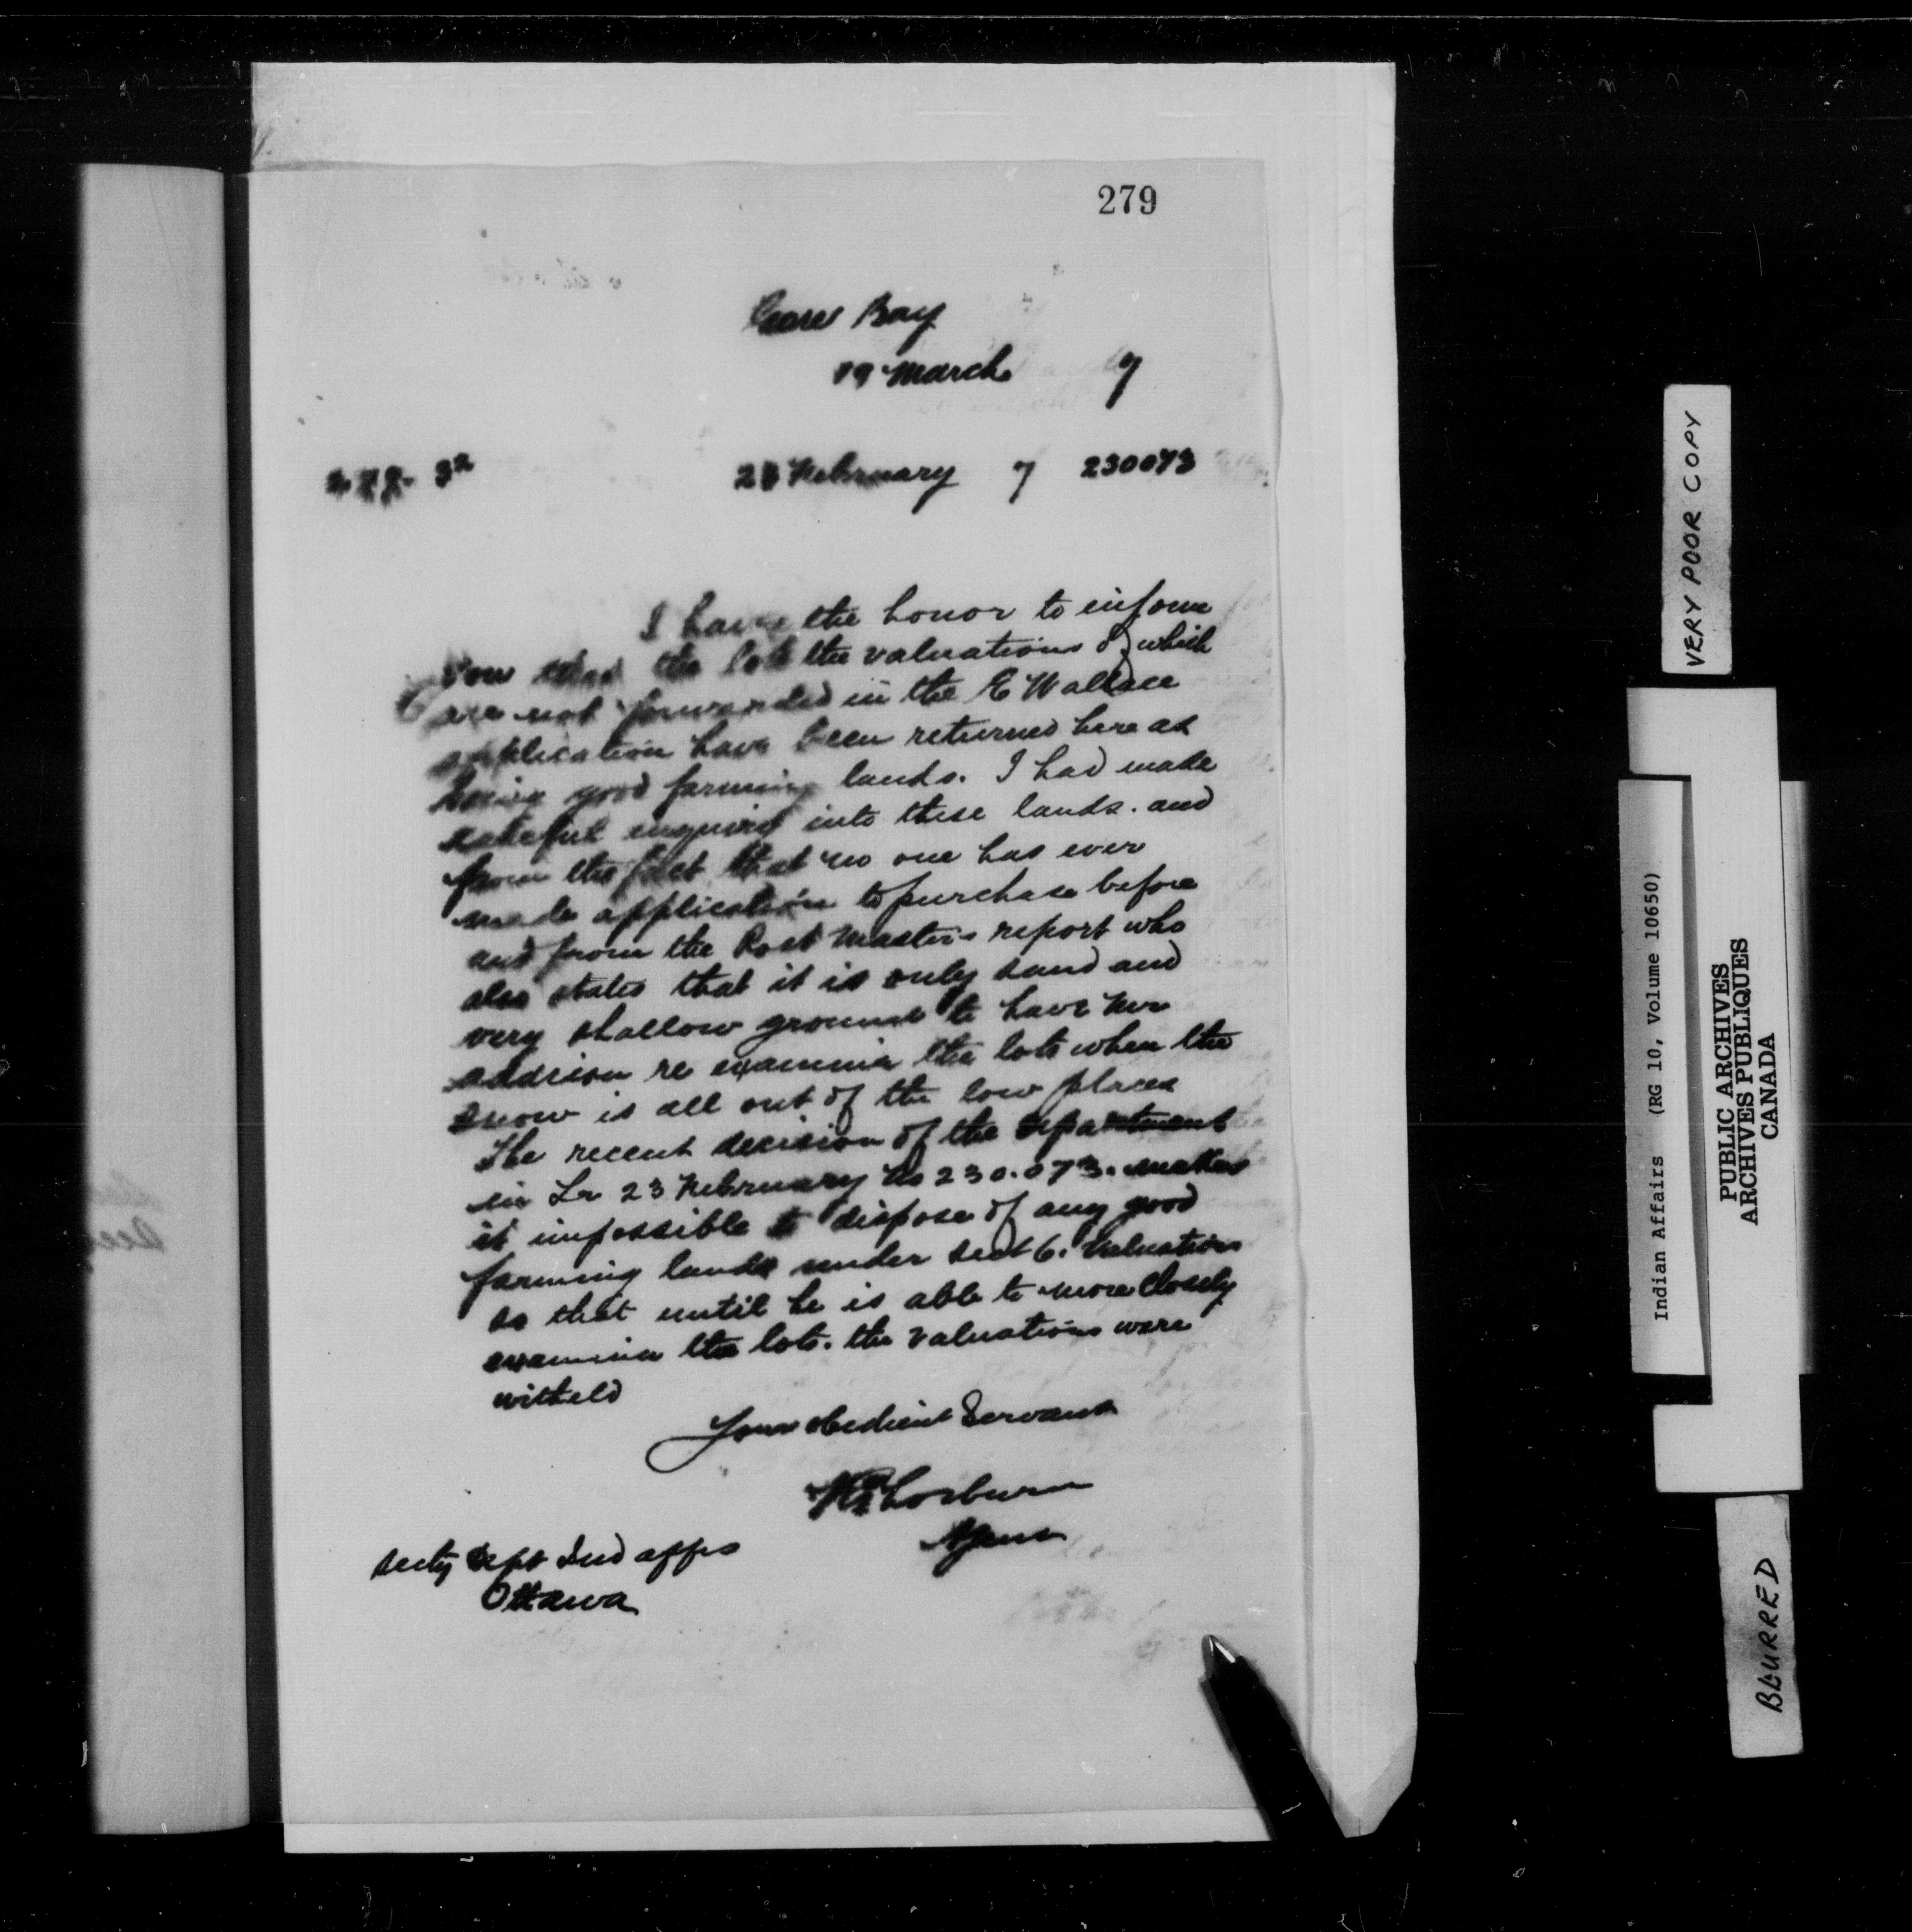 279
Gore Bay
19 March 7
23 February 7 230073
I have the honor to inform
you that the lots the valuations of which
are not forwarded in the E Wallace
application have been returned here as
being good farming lands. I had made
careful enquiries into these lands. and
from the fact that no one has ever
made application to purchase before
and from the Post Masters report who
also states that it is only sand and
very shallow ground to have Mr
addison re examine the lots when the
snow is all out of the low places
The recent decision of the Department
in Lr 23 February No 230.073. makes
it impossible to dispose of any good
farming lands under sect 6. Valuations
so that until he is able to more closely
examine the lots. the valuations were
witheld
Your obedient Servant
Thorburn
Agent
Secty Dept Ind affrs
Ottawa
VERY POOR COPY
Indian Affairs (RG 10, Volume 10650)
PUBLIC ARCHIVES
ARCHIVES PUBLIQUES
CANADA
BLURRED